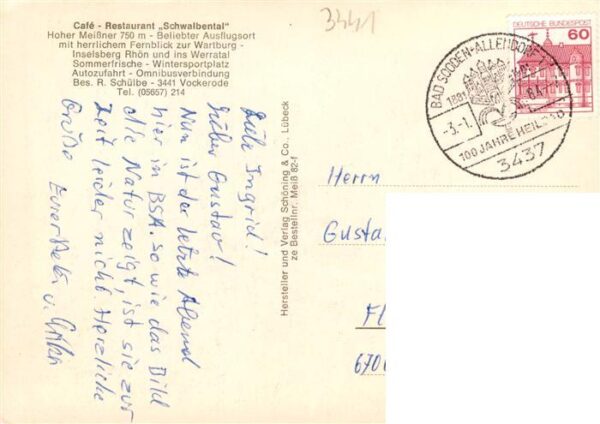 Café - Restaurant „Schwalbental"
Hoher Meißner 750 m - Beliebter Ausflugsort
mit herrlichem Fernblick zur Wartburg -
Inselsberg Rhön und ins Werratal
Sommerfrische - Wintersportplatz
Autozufahrt - Omnibusverbindung
Bes. R. Schülbe - 3441 Vockerode
Tel. (05657) 214
3441
Liebe Ingrid!
Lieber Gustav!
Nun ist der letzte Abend
hier in BSA. so wie das Bild
die Natur zeigt, ist sie zur
Zeit leider nicht. Herzliche
Grüße Euer Peter u.
Hersteller und Verlag Schöning & Co., Lübeck
ze Bestellnr. Meiß 82-f
DEUTSCHE BUNDESPOST
60
BAD SOODEN-ALLENDORF 1
1881
-3.-1.
84
100 JAHRE HEILBAD
3437
Herrn
Gusta
Fl
670